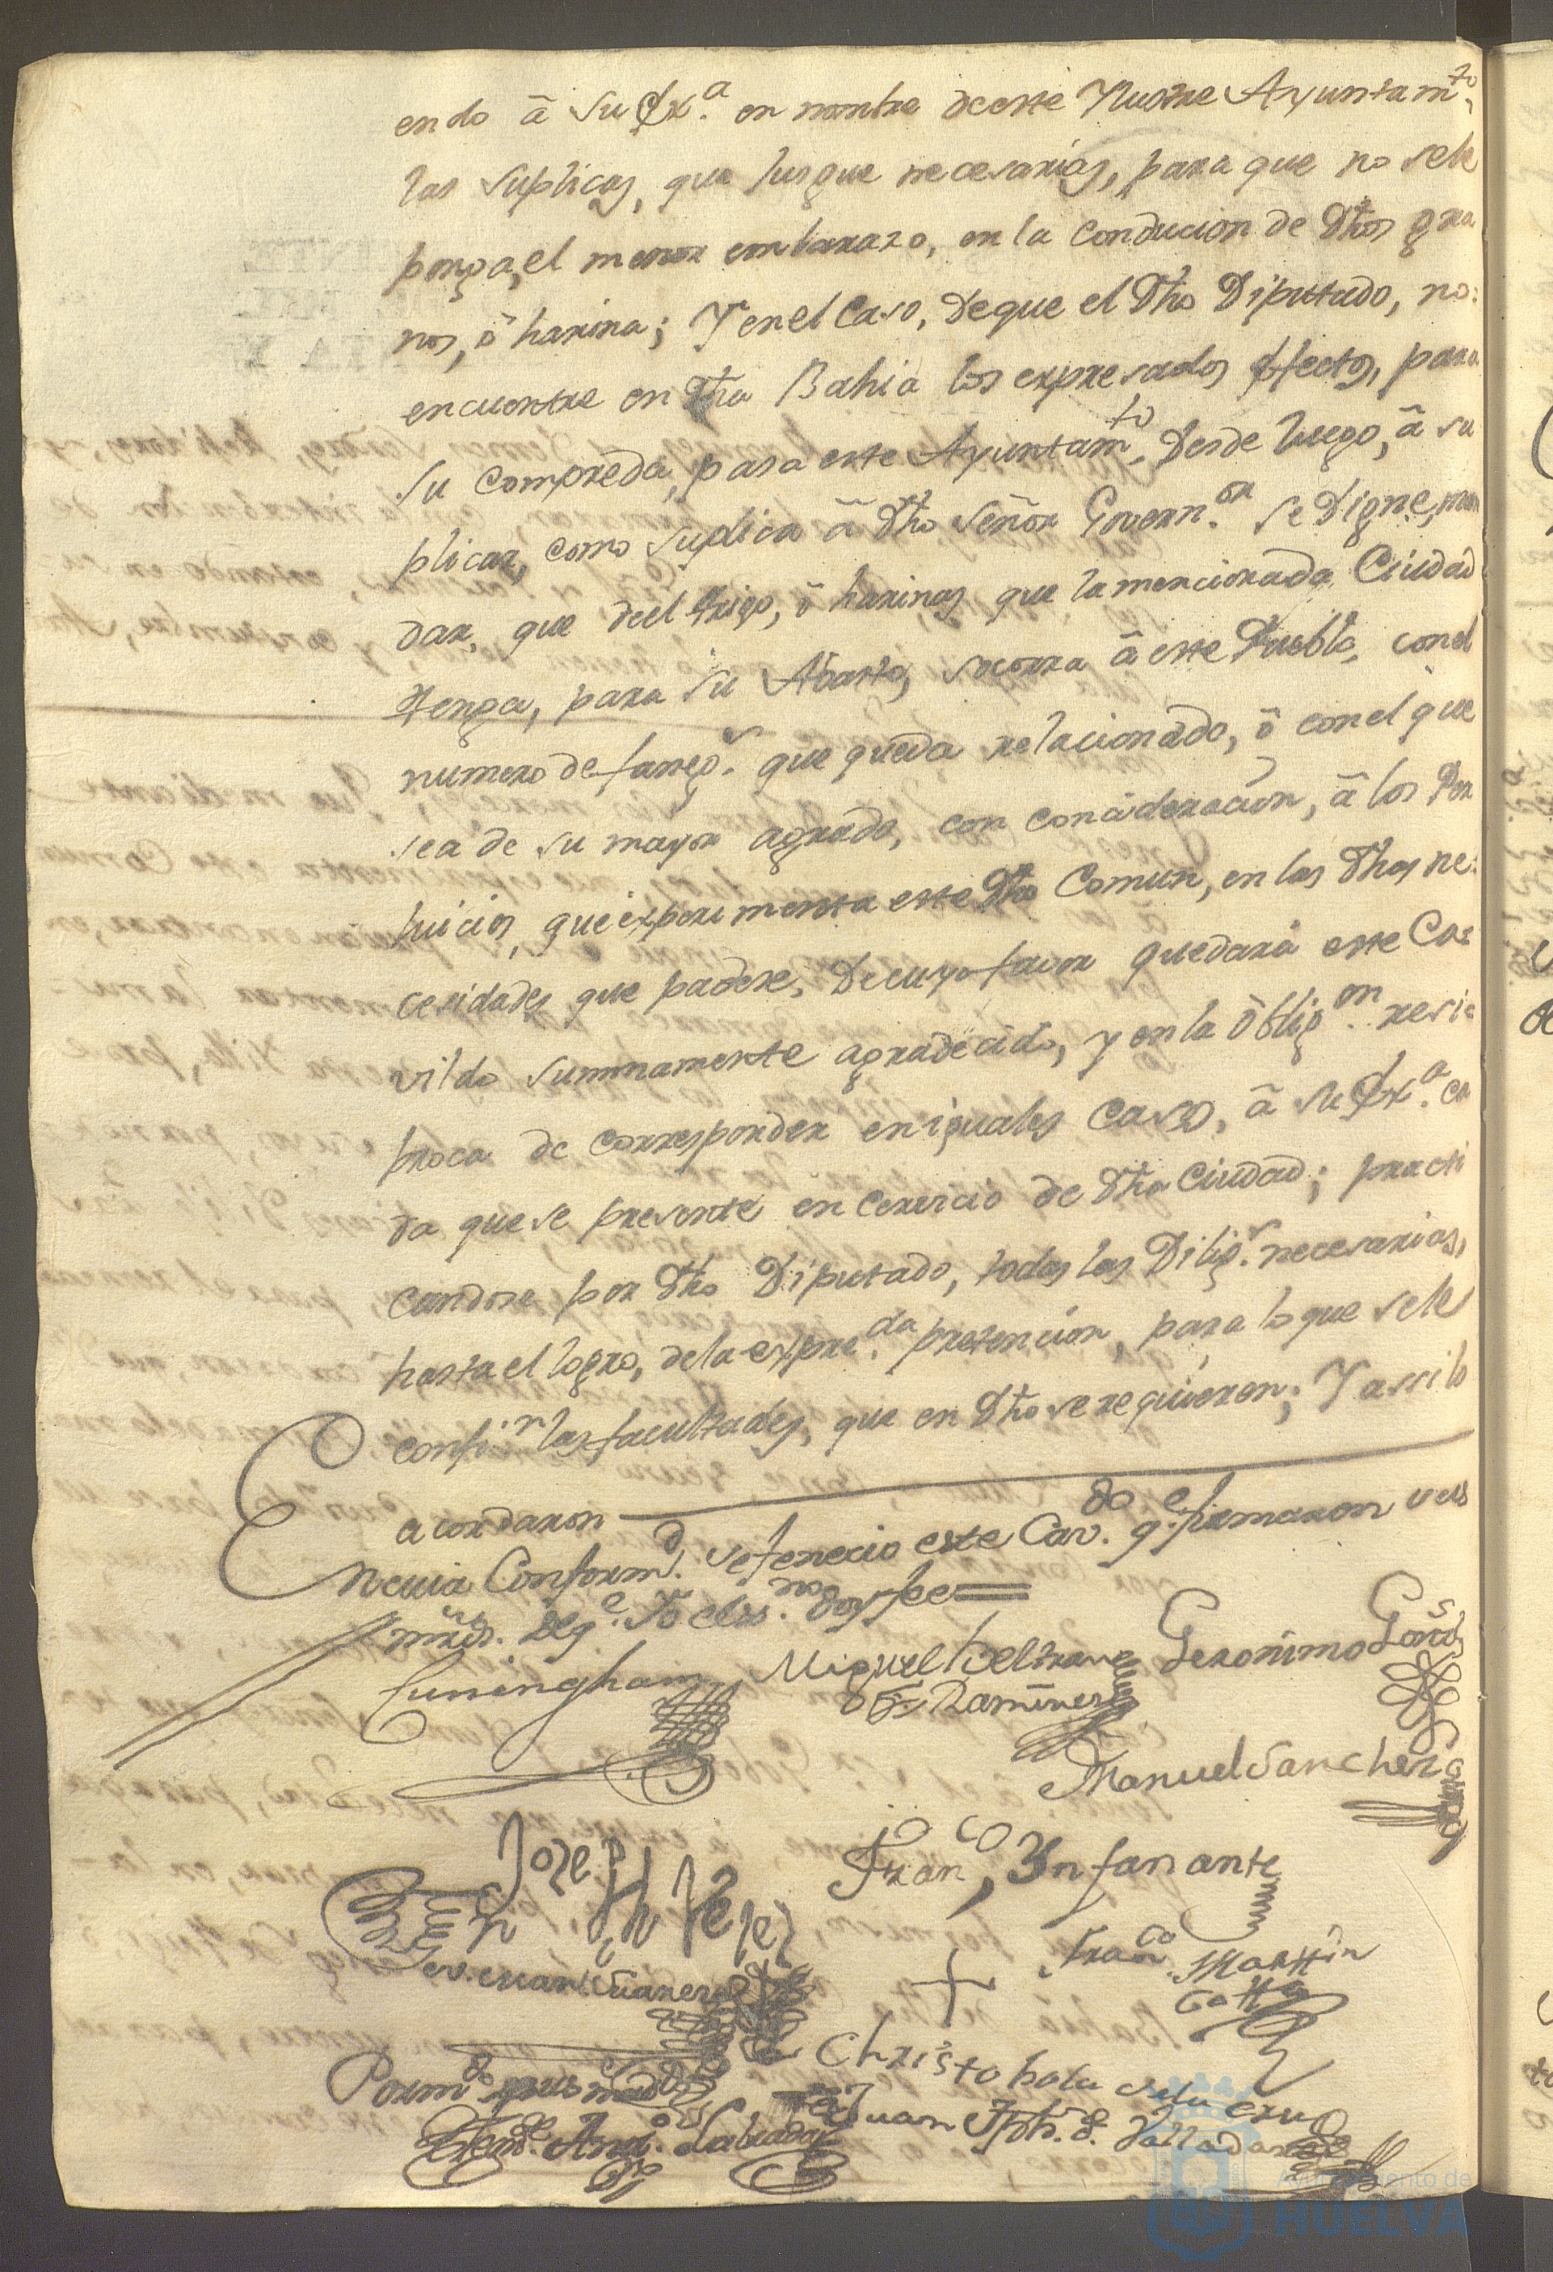 endo â su Exª. en nombre de este Yllustre Ayuntamto,
las suplicas, que fuesen necesarias, para que no se le
ponga, el menor embarazo, en la conducion de dhos gra
nos, ô harina; Y en el Caso, de que el dho Diputado, no:
encuentre en dha Bahia los expresados efectos, para
su comprada, pasa este Ayuntamto, desde luego, â su
plicar, como suplica â dho Señor Governor. se digne, man
dar, que del trigo, ô harinas que la mencionada Ciudad
tenga, para su Abasto, socorra â este Pueblo, con el
numero de fanegs. que queda relacionado, ô con el que
sea de su mayor agrado, con concideracion, â los Per
juicios, que experimenta este dho Comun, en las dhas ne:
cesidades que padese, de cuyo favor quedará este Ca:
vildo summamente agradecido, y en la obligon. resi:
proca de corresponder en iguales casos, â su Exª. ca
da que se presente en Cervicio de dha Ciudad; practi
candose por dho Diputado, todas las Diligs. necesarias,
hasta el logro, de la expreda. pretencion, para lo que se le
confiern las facultades, que en dho se requieren; Y assi lo
acordaron
En cuia Conformd. se fenecio este Cavdo. qe. firmaron sus
mrds. de qe. Yo el essno. doy fee
Cuningham
Miguel Beltran
Ramires
Geronimo Garcs
Manuel Sanchez
Joseph Velez
Franco, Ynfanante
Franco Martin
Gatto
+
Christobal de la cruz
Por mdo. de sus mrds
Juan Jph. d. Valladares
Ayuntamiento de
HUELVA